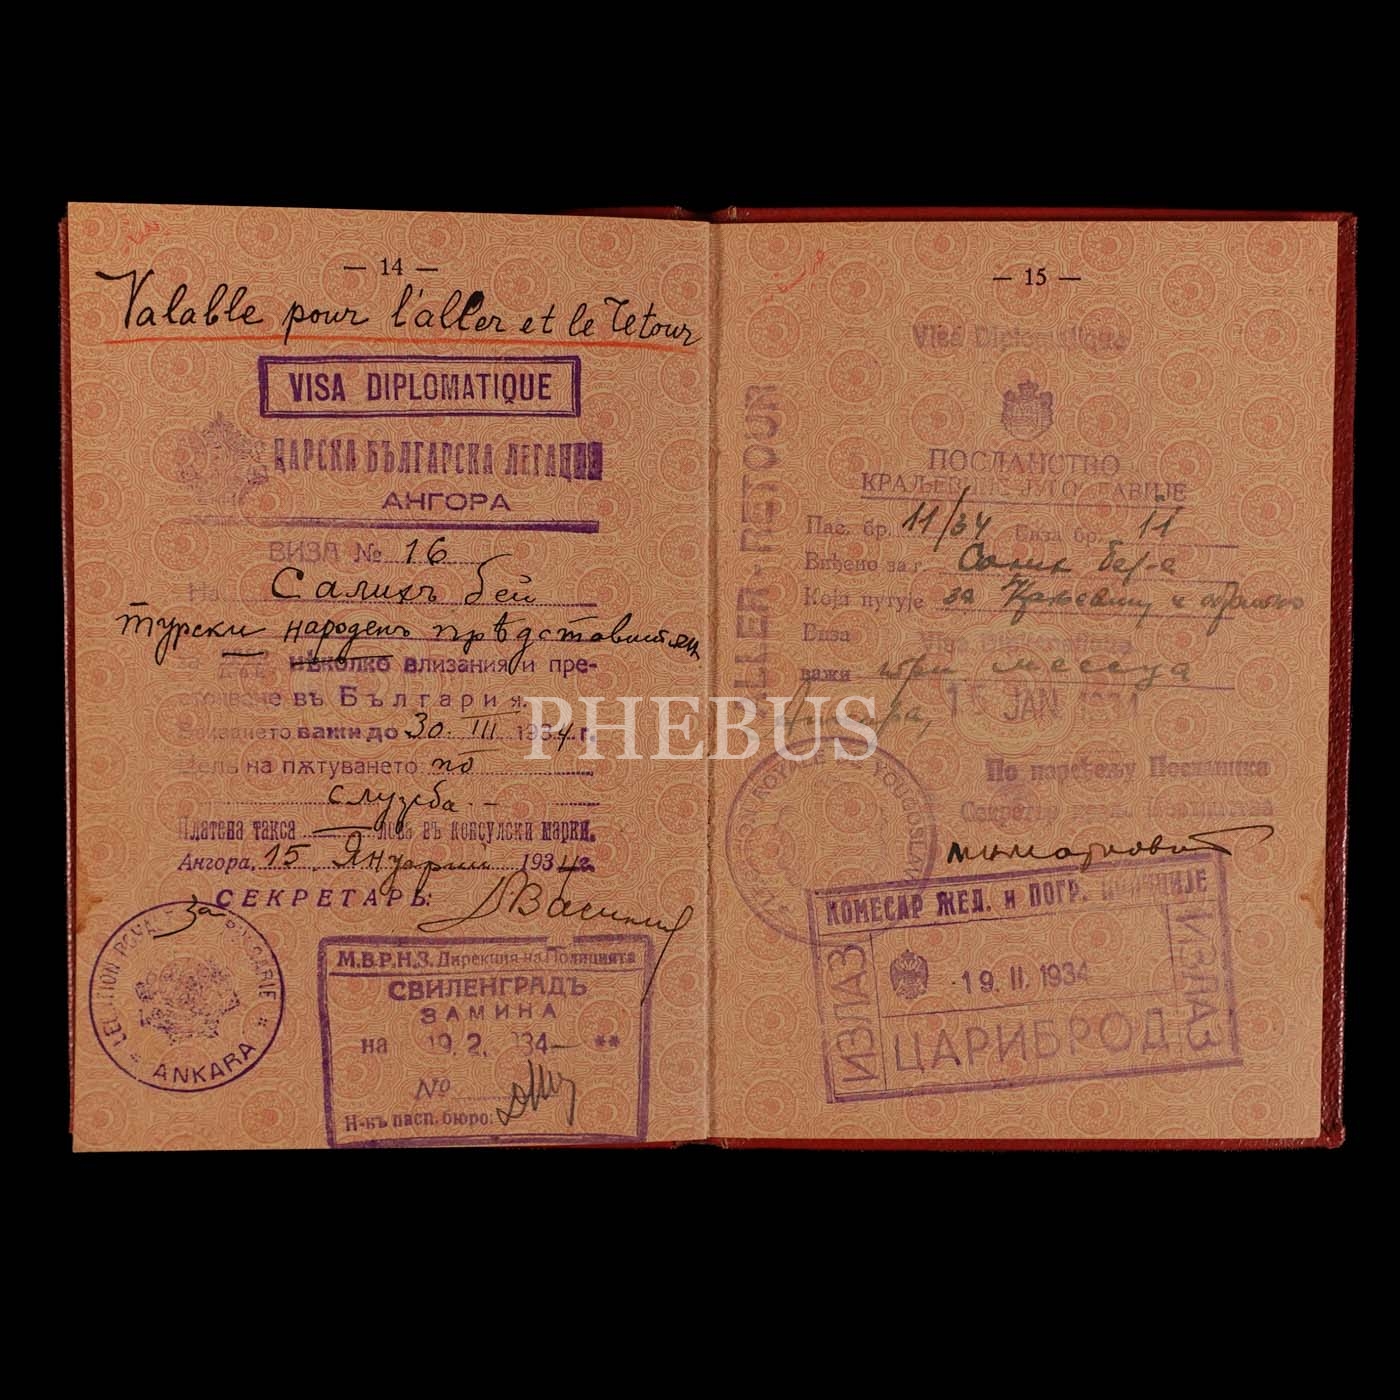 — 14 —
Valable pour l'aller et le retour
VISA DIPLOMATIQUE
ЦАРСКА БЪЛГАРСКА ЛЕГАЦИЯ
АНГОРА
ВИЗА № 16
На Салихъ бей
турски народенъ прѣдставитель
за нѣколко влизания и пре-
въ България.
важи до 30. III 1934 г.
Цель на пѫтуването по
служба. -
Платена такса лева въ консулски марки.
Ангора, 15. Януарий 1934 г.
за СЕКРЕТАРЬ:
LEGATION ROYALE BULGARIE
ANKARA
М.В.Р.Н.З. Дирекция на Полицията
СВИЛЕНГРАДЪ
ЗАМИНА
на 19. 2. 934 — **
№
Н-къ пасп. бюро:
— 15 —
Visa Diplomatique
ALLER-RETOUR
ПОСЛАНСТВО
КРАЉЕВИНЕ ЈУГОСЛАВИЈЕ
Пас. бр. 11/34 Виза бр. 11
Виђено за г. Салих бег-а
Који путује за
Виза
важи три месеца
Ангора, 15 JAN 1934
По наређењу Посланика
Секретар
LEGATION ROYALE DE YOUGOSLAVIE
КОМЕСАР ЖЕЛ. и ПОГР. ПОЛИЦИЈЕ
ИЗЛАЗ
19. II. 1934
ИЗЛАЗ
ЦАРИБРОД
PHEBUS